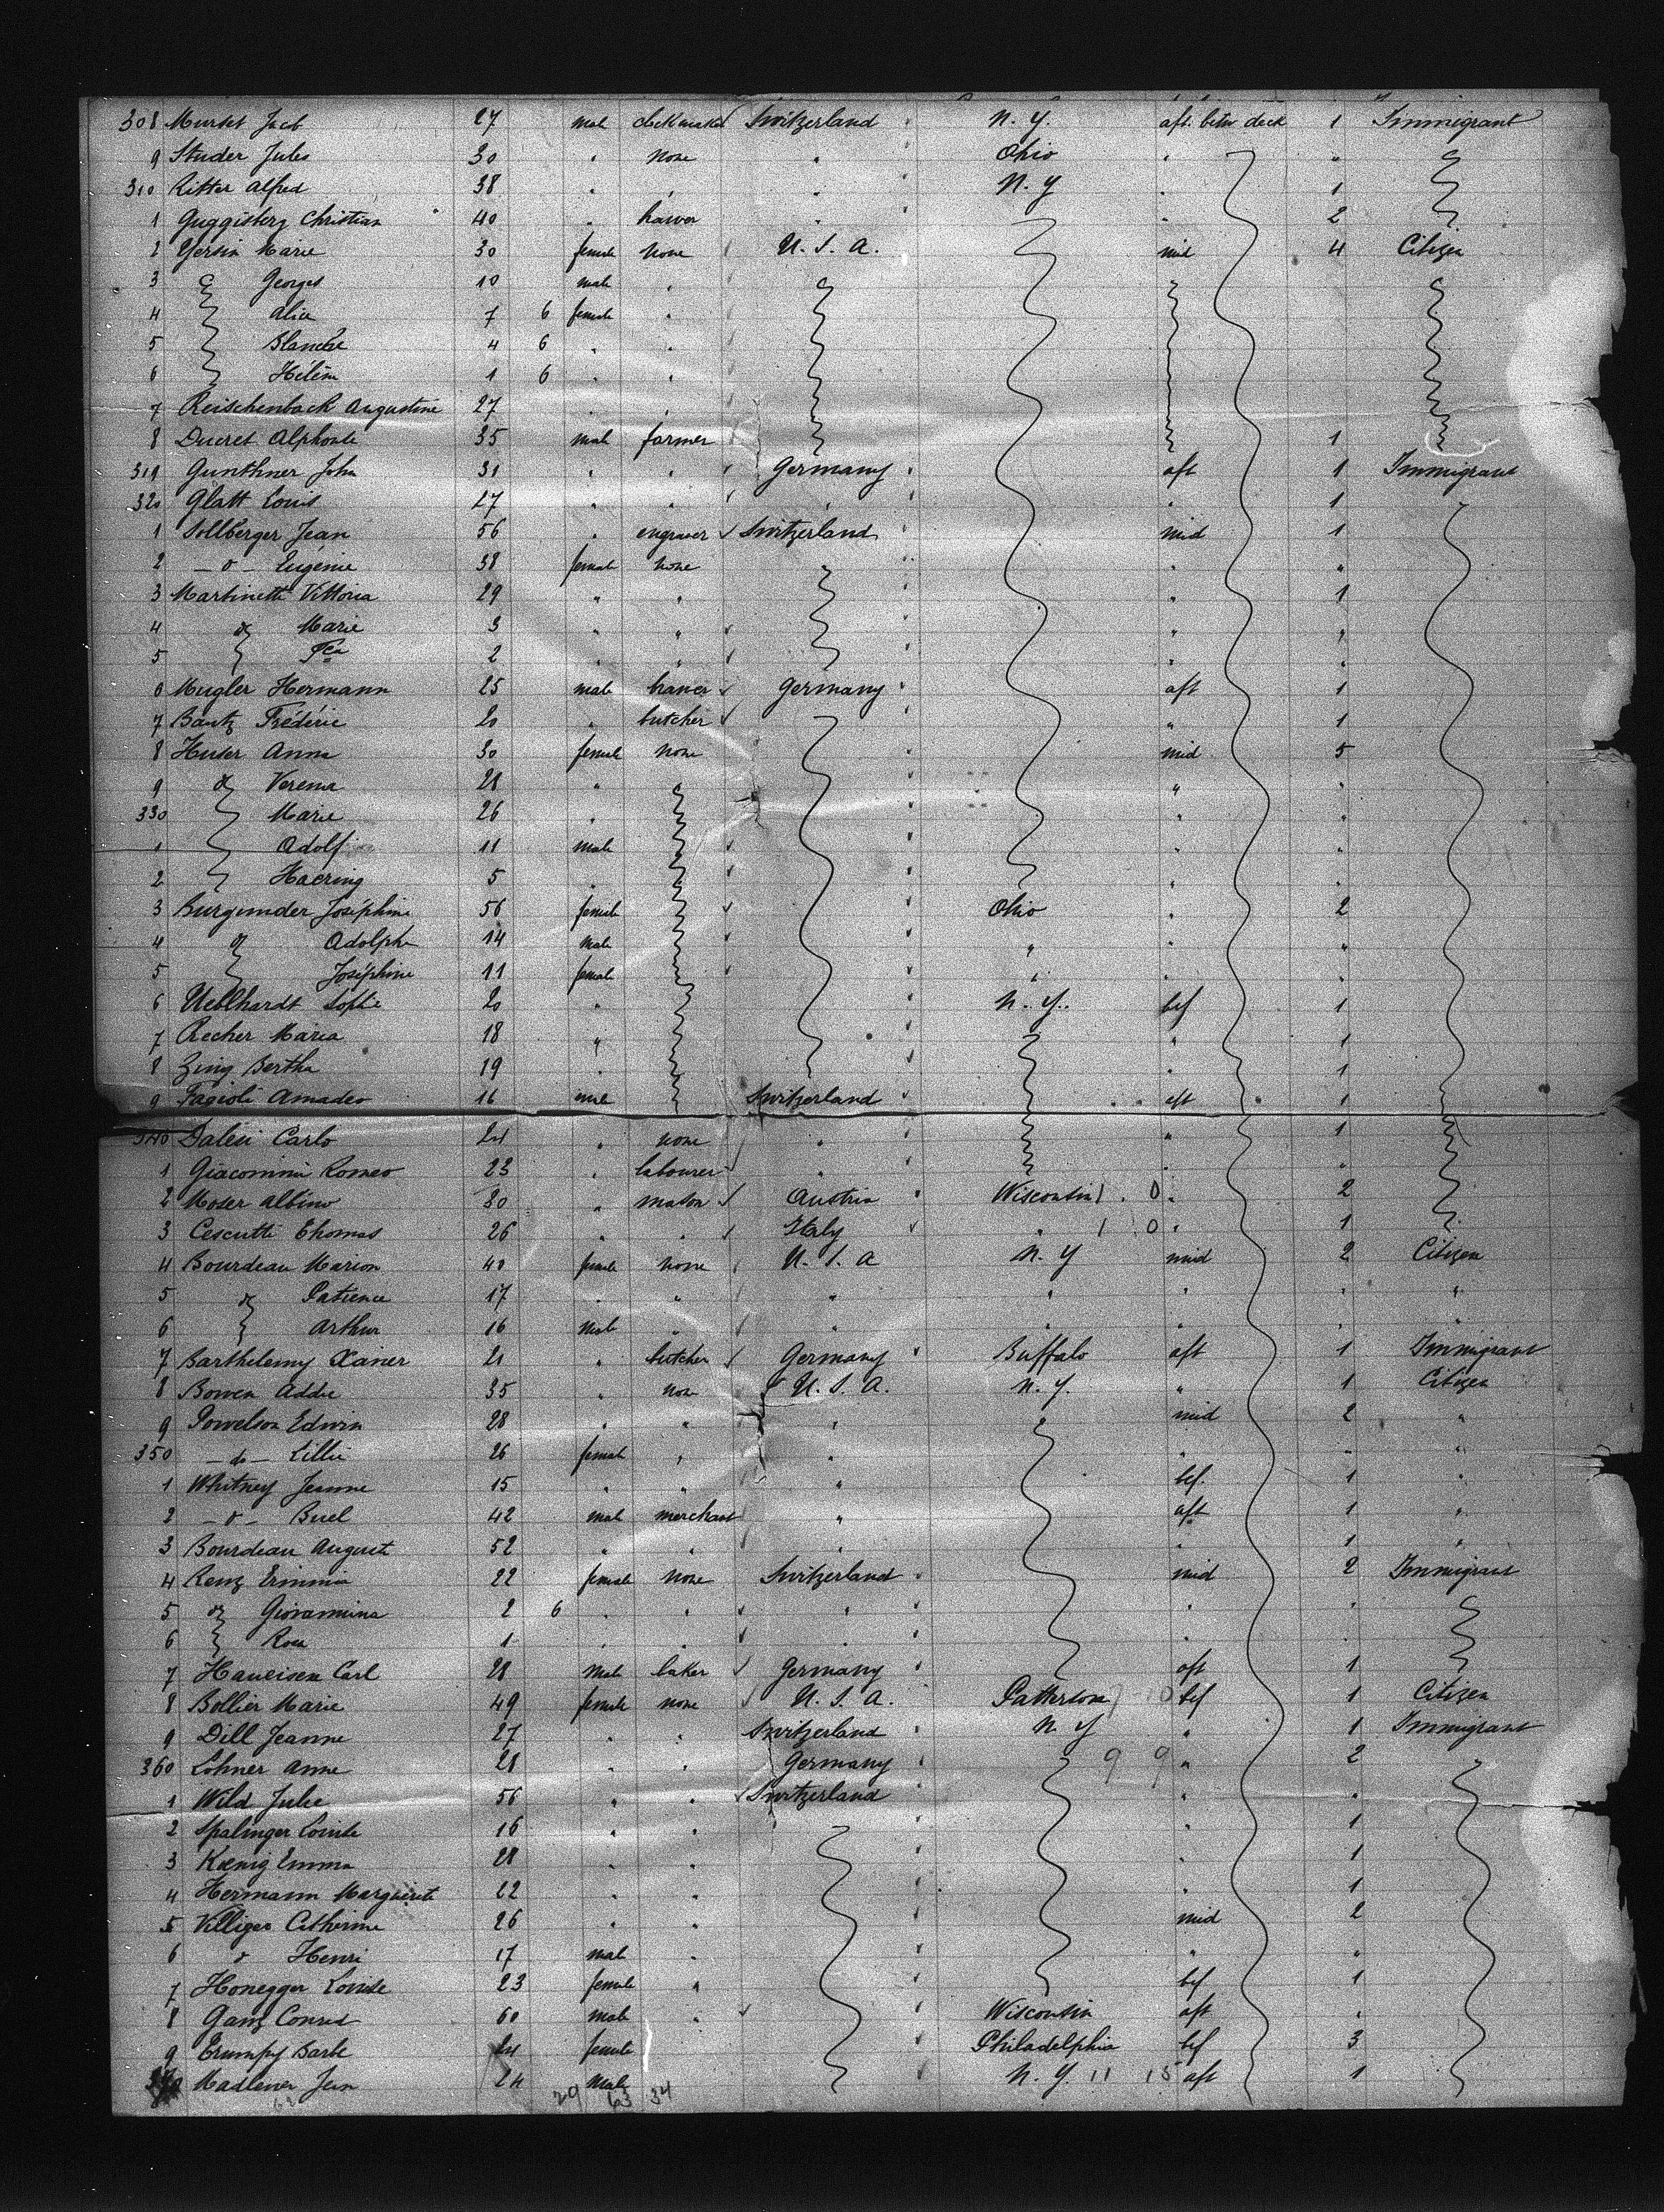 308 Murset Jacb 27 male clockmaker Switzerland N. Y. aft. betw deck 1 Immigrant
9 Studer Jules 30 " none " Ohio " "
310 Ritter Alfred 38 " " " N. Y " 1
1 Guggisberg Christian 40 " " " 2
2 Yersin Marie 30 female none U. S. A. mid 4 Citizen
3 Georges 10 male "
4 Alice 7 6 female "
5 Blanche 4 6 " "
6 Hélèn 1 6 " "
7 Reischenbach Augustine 27 " "
8 Ducret Alphonse 35 male farmer 1
319 Gunthner John 31 " " Germany aft 1 Immigrant
320 Glatt Louis 27 " " " " 1
1 Sollberger Jean 56 " engraver Switzerland mid 1
2 - o - Eugénie 38 female none " "
3 Martinetti Vittoria 29 " " " 1
4 Marie 3 " " " "
5 2 " " " "
6 Mugler Hermann 25 male Germany aft 1
7 Bautz Frédéric 20 " butcher " 1
8 Huser Anna 30 female none mid 5
9 Verena 28 " " "
330 Marie 26 " " "
1 Adolf 11 male " "
2 Haering 5 " " "
3 Burgunder Joséphine 56 female Ohio " 2
4 Adolphe 14 male " " "
5 Joséphine 11 female " " "
6 Ueblhardt Sophie 20 " N. Y. bef 1
7 Recher Maria 18 " " 1
8 Zing Bertha 19 " " 1
9 Fagioli Amadeo 16 male Switzerland aft 1
340 Dalesi Carlo 24 " none " " 1
1 Giacomini Romeo 23 " labourer " " "
2 Moser Albino 30 " mason Austria Wisconsin 1 . 0 " 2
3 Cescutti Thomas 26 " " Italy " 1 0 " 1
4 Bourdeau Marion 40 female none U. S. A N. Y mid 2 Citizen
5 Patience 17 " " " " " " "
6 Arthur 16 male " " " " " "
7 Barthelemy Xavier 21 " butcher Germany Buffalo aft 1 Immigrant
8 Bowen Addie 35 " none U. S. A. N. Y. " 1 Citizen
9 Powelson Edwin 28 " " " mid 2 "
350 - do - Lillie 26 female " " " " "
1 Whitney Jeanne 15 " " " bef. 1 "
2 - o - Buel 42 male merchant " aft 1 "
3 Bourdeau August 52 " " " " 1 "
4 Renz Erminia 22 female none Switzerland mid 2 Immigrant
5 Giovannina 2 6 " " " " "
6 Rosa 1 " " " " "
7 Haueisen Carl 28 male baker Germany aft 1
8 Bollier Marie 49 female none U. S. A. Patterson bef 1 Citizen
9 Dill Jeanne 27 " " Switzerland N. Y " 1 Immigrant
360 Lohner Anne 28 " " Germany 9 9 " 2
1 Wild Julie 56 " " Switzerland " "
2 Spalinger Louise 16 " " " 1
3 Kœnig Emma 28 " " " 1
4 Hermann Marguerite 22 " " " 1
5 Villiger Catherine 26 " " mid 2
6 Henri 17 male " " "
7 Honegger Louise 23 female " bef 1
8 Ganz Conrad 60 male " Wisconsin aft "
9 Trumpy Barbe 24 female Philadelphia bef 3
370 Madlener Jean 24 male N. Y. 11 15 aft 1
29 63 34